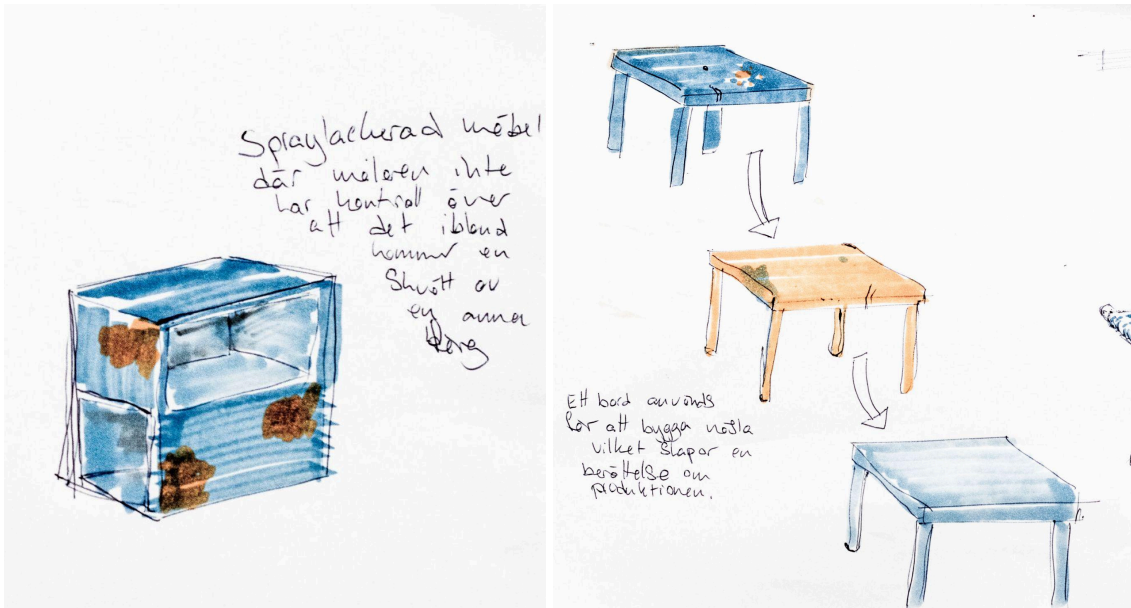 Spraylackerad möbel
där målaren inte
har kontroll över
att det ibland
kommer en
Skvätt av
en annan
färg
Ett bord används
för att bygga nästa
vilket skapar en
berättelse om
produktionen.